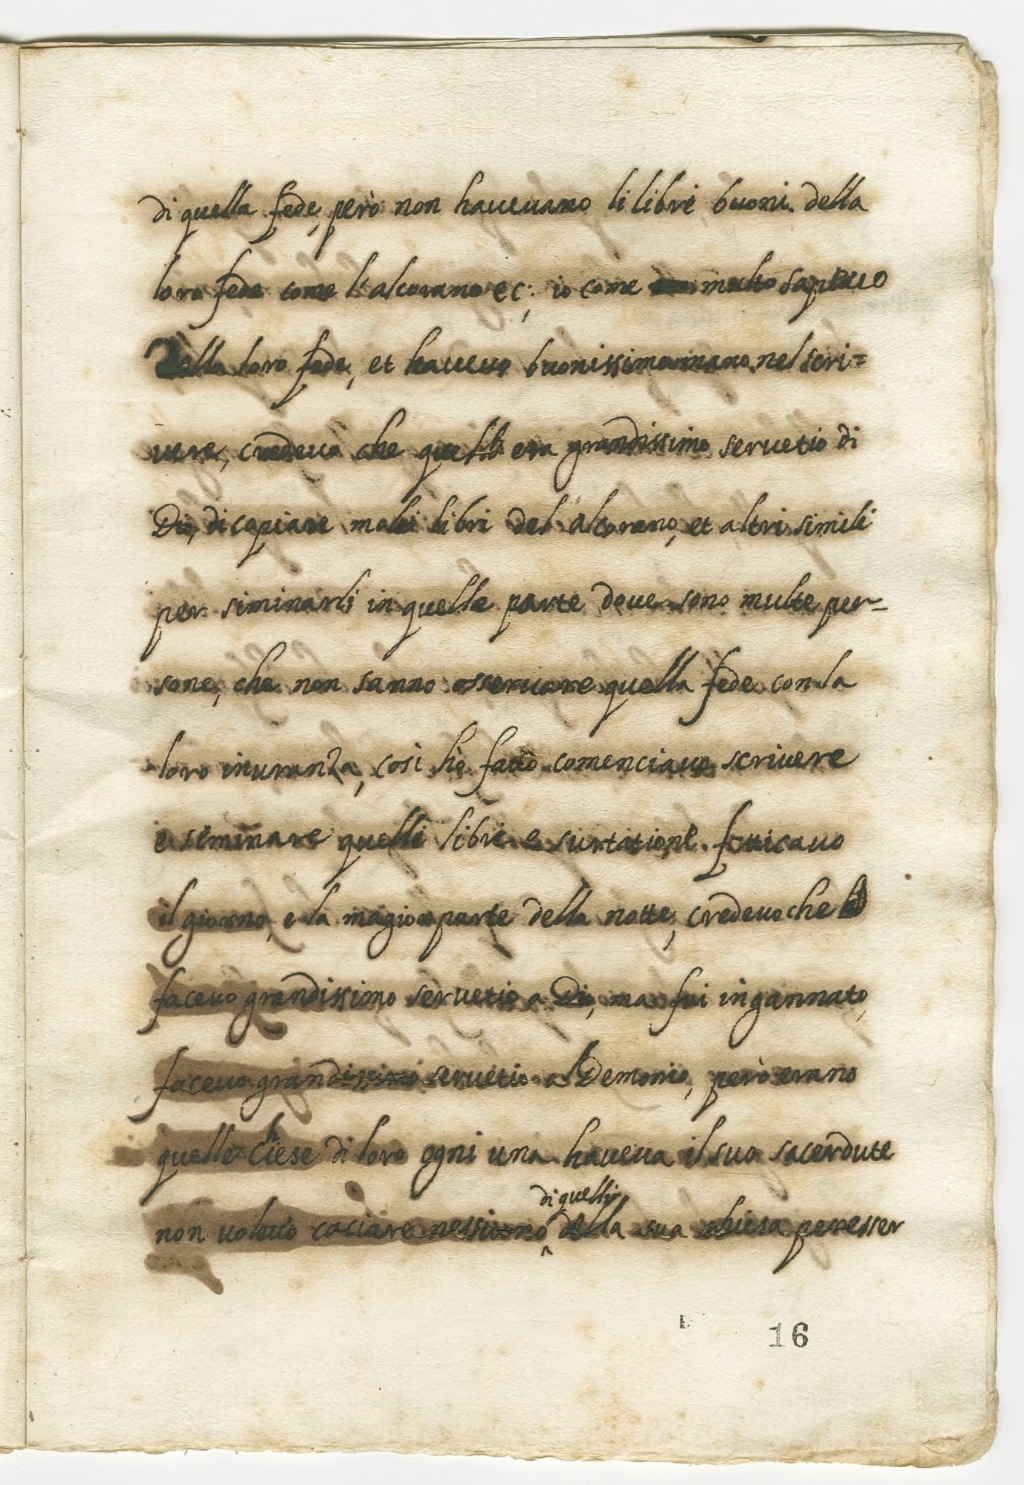 di quella fede, però non havevano li libri buoni della
loro fede come l'alcorano ec: io come multo sapevo
della loro fede, et havevo buonissima mano nel scri=
vere, credeva che quelli era grandissimo servetio di
Dio, di copiare molti libri del Alcorano, et altri simili
per siminarli in quelle parte dove sono multe per=
sone, che non sanno osservare quella fede con la
loro inuranza, cosi hò fatto comenciavo scrivere
e seminare quelli libri e surtatione. fatticavo
il giorno, e la magior parte della notte, credevo che
facevo grandissimo servetio a Dio, ma fui ingannato,
facevo grandissimo servetio al Demonio, però erano
quelle Chiese di loro ogni una haveva il suo sacerdute
non voluto caciare nessuno di quelli della sua chiesa per esser
16